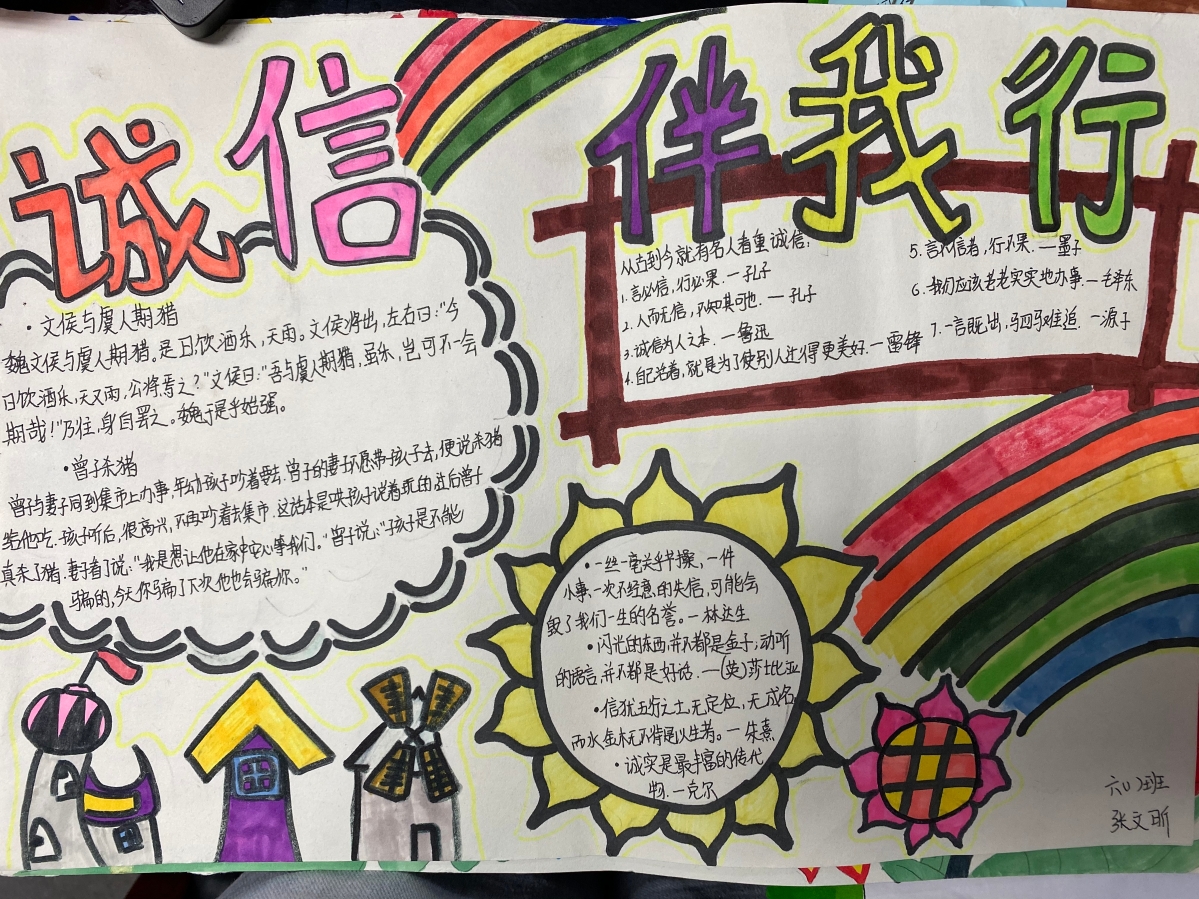 诚信伴我行
·文侯与虞人期猎
魏文侯与虞人期猎。是日,饮酒乐,天雨。文侯将出,左右曰:"今
日饮酒乐,天又雨,公将焉之?"文侯曰:"吾与虞人期猎,虽乐,岂可不一会
期哉!"乃往,身自罢之。魏于是乎始强。
·曾子杀猪
曾子与妻子同到集市上办事,年幼孩子吵着要去.曾子的妻子不愿带孩子去,便说杀猪
给他吃.孩子听后,很高兴,不再吵着去集市.这话本是哄孩子说着玩的过后曾子
真杀了猪.妻子看了说:"我是想让他在家中安心等我们。"曾子说:"孩子是不能
骗的,今天你骗了下次他也会骗你。"
从古到今就有名人看重诚信:
1.言必信,行必果.—孔子
2.人而无信,不知其可也.—孔子
3.诚信为人之本.—鲁迅
4.自己活着,就是为了使别人过得更美好.—雷锋
5.言不信者,行不果.—墨子
6.我们应该老老实实地办事.—毛泽东
7.一言既出,驷马难追.—源子
·一丝一毫关乎节操,一件
小事、一次不经意的失信,可能会
毁了我们一生的名誉。—林达生
·闪光的东西,并不都是金子,动听
的语言,并不都是好话.—(英)莎士比亚
·信犹五行之土,无定位,无成名,
而水金木无不待是以生者。—朱熹
·诚实是最丰富的传代
物.—克尔
六(1)班
张文昕